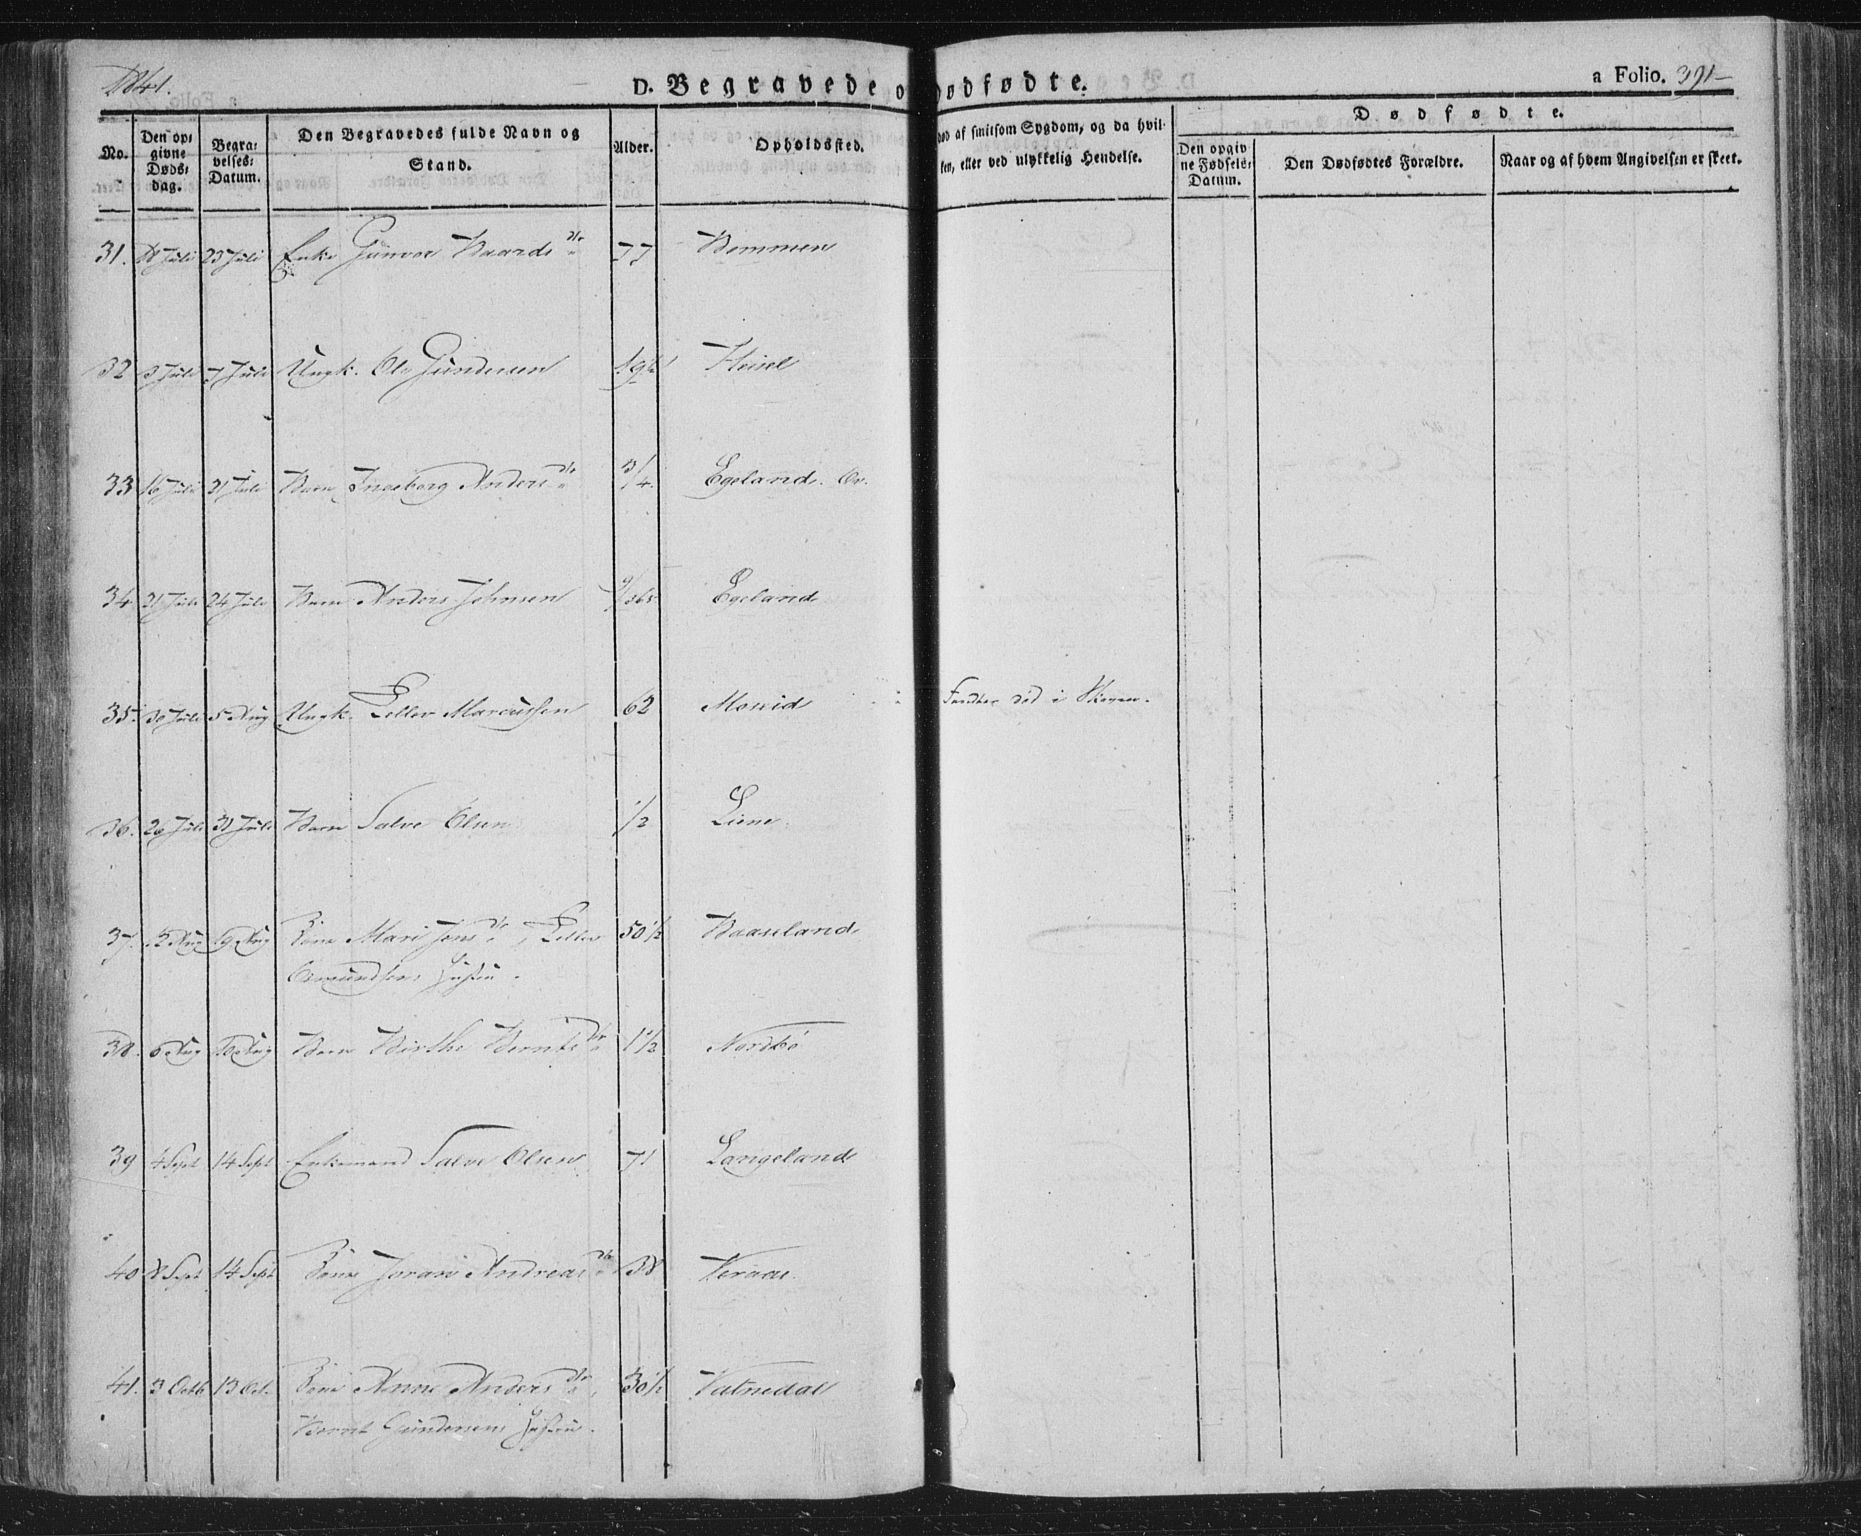 1841.
D. Begravede o
ødfødte.
a Folio. 391
No.
Den op-
givne
Døds-
dag.
Begra-
velses-
Datum.
Den Begravedes fulde Navn og
Stand.
Alder.
Opholdssted.
død af smitsom Sygdom, og da hvil-
ken, eller ved ulykkelig Hendelse.
Dødfødte.
Den opgiv
ne Fødsels-
Datum.
Den Dødfødtes Forældre.
Naar og af hvem Angivelsen er skeet.
31. 18 Juli 23 Juli Enke Gunvor Baards dtr 77 Bommen
32 3 Juli 7 Juli Ungk. Ole Gundersen 19½ Heisel
33 16 Juli 31 Juli Barn Ingeborg Anders dtr 3/4 Egeland. Ov.
34 21 Juli 24 Juli Barn Anders Johnsen 9/365 Egeland
35. 30 Juli 5 Aug Ungk. Tellev Marcussen 62 Moseid Fundben död i Skoven.
36. 26 Juli 31 Juli Barn Salve Olsen 1/2 Liene
37. 12 Aug 19 Aug Kone Mari Jens dtr, Tellev 50½ Baaseland
Omundsens Hustru.
38. 6 Aug 10 Aug Barn Birthe Bernts dtr 1½ Nordbö
39 4 Sept 14 Sept Enkemand Salve Olsen 71 Langeland
40 8 Sept 14 Sept Kone Joran Andreas dtr 38 Veraas.
41. 3 Octb 13 Oct. Kone Anne Anders dtr, 30½ Vatnedal
Bernt Gundersens Hustru.